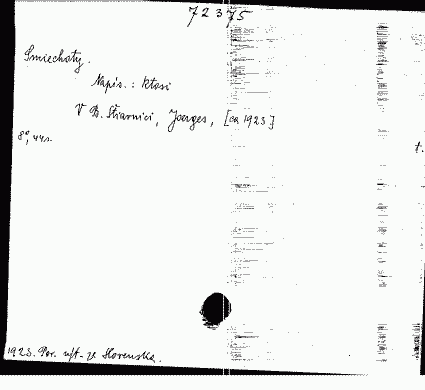 72375
Smiechoty.
Napís.: Ktosi
V B. Štiavnici, Joerges, [ca 1923]
8°, 44s.
t.
1923. Por. výt. ze Slovenska.